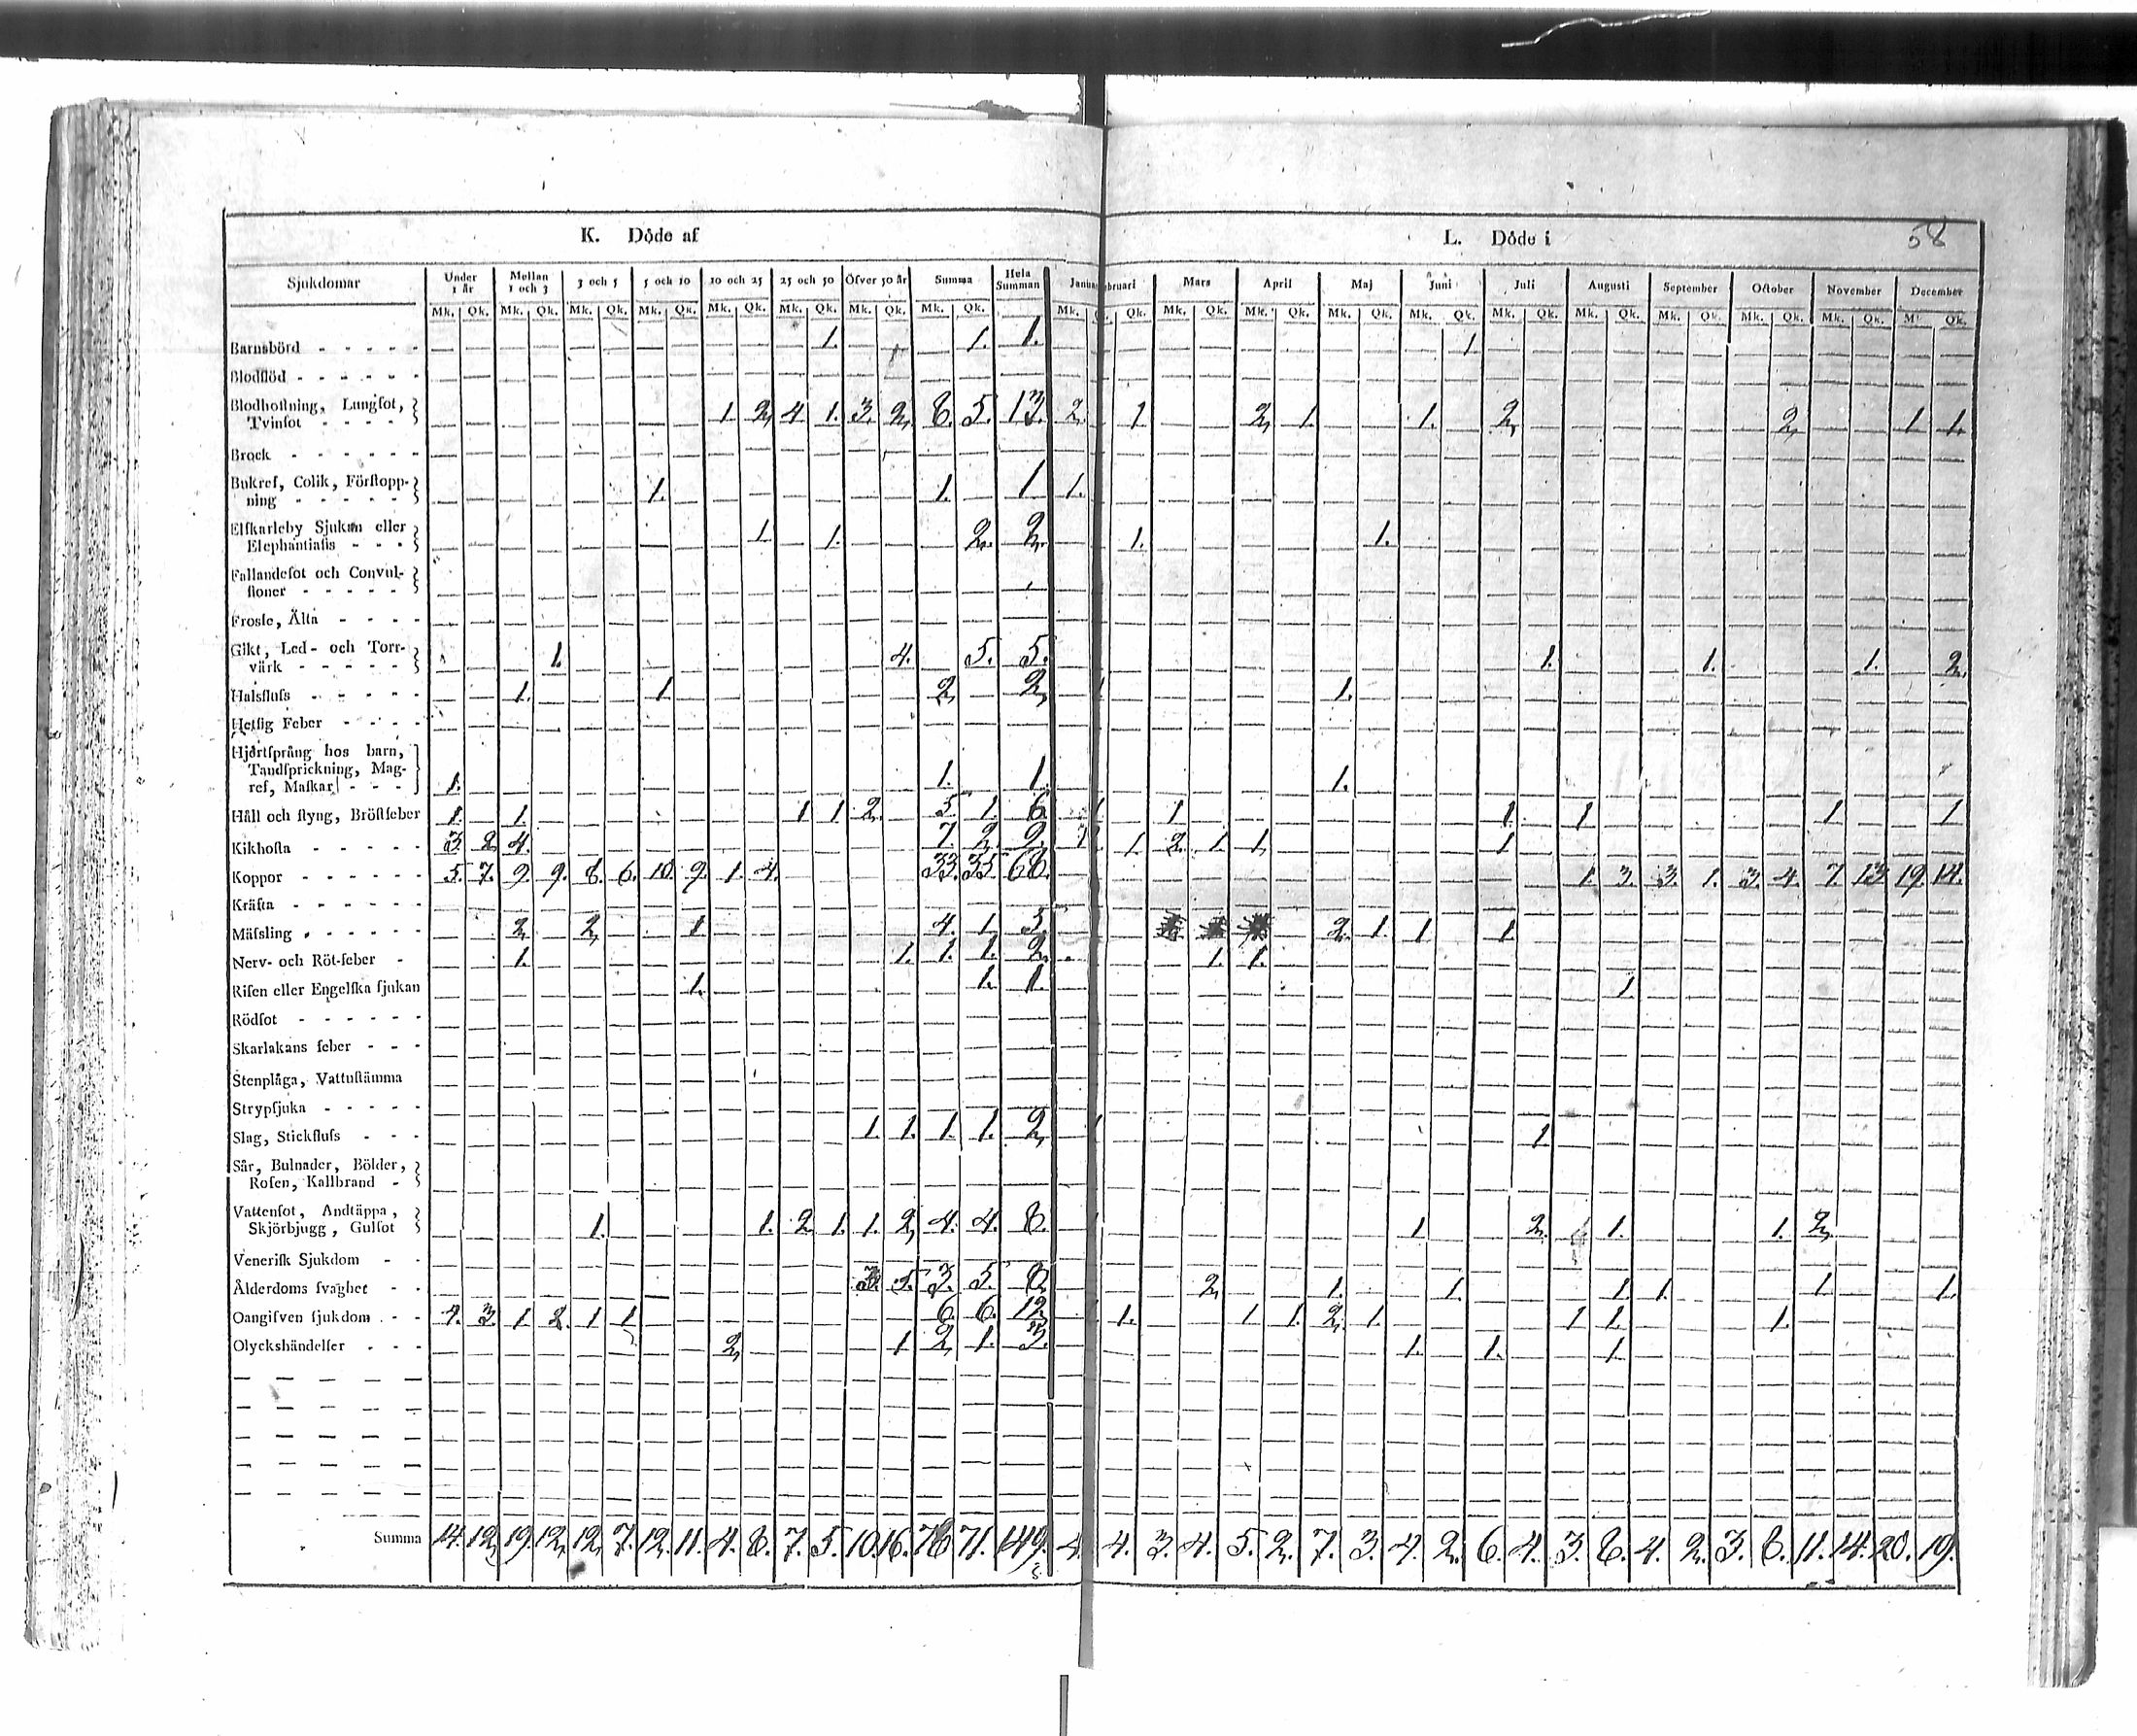 K. Döde af
L. Döde i
58
Sjukdomar Under 1 år Mellan 1 och 3 3 och 5 5 och 10 10 och 25 25 och 50 Öfver 50 år Summa Hela Summan Mars April Maj Juni Juli Augusti September October November December
Mk. Qk. Mk. Qk. Mk. Qk. Mk. Qk. Mk. Qk. Mk. Qk. Mk. Qk. Mk. Qk. Mk. Qk. Mk. Qk. Mk. Qk. Mk. Qk. Mk. Qk. Mk. Qk. Mk. Qk. Mk. Qk. Mk. Qk. Mk. Qk. Qk.
Barnsbörd - - - - - 1. 1. 1. 1
Blodflöd - - - - - -
Blodhostning, Lungsot,
Tvinsot - - - - 1. 2, 4 1. 3. 2, 8. 5. 13. 2. 1 2, 1. 1. 2, 2, 1 1.
Brock - - - - - -
Bukref, Colik, Förstopp-
ning - - - - - 1. 1. 1 1.
Elfkarleby Sjukan eller
Elephantiasis - - - 1 1. 2, 2, 1. 1.
Fallandesot och Convul-
sioner - - - - -
Frosse, Älta - - - -
Gikt, Led- och Torr-
värk - - - - - 1. 4. 5. 5. 1. 1. 1. 2,
Halsfluss - - - - - 1. 1 2, 2, 1.
Hetsig Feber - - - -
Hjörtsprång hos barn,
Tandsprickning, Mag-
ref, Maskar - - - 1. 1. 1. 1.
Håll och styng, Bröstfeber 1. 1. 1 1 2. 5 1. 6 1 1 1 1 1 1
Kikhosta - - - - - 3. 2 4. 7. 2. 9. 1. 2. 1 1. 1
Koppor - - - - - - 5. 7. 9. 9. 8. 6. 10. 9. 1. 4. 33. 35. 68. 1. 3. 3. 1. 3. 4. 7. 13 19. 14.
Kräfta - - - - - -
Mässling - - - - - - 2, 2, 1 4. 1. 5 2. 1. 1 1.
Nerv- och Röt-feber - 1. 1. 1. 1. 2, 1. 1.
Risen eller Engelska sjukan 1. 1. 1. 1.
Rödsot - - - - - -
Skarlakans feber - - -
Stenplåga, Vattustämma
Strypsjuka - - - - -
Slag, Stickfluss - - - 1. 1. 1. 1. 2, 1 1
Sår, Bulnader, Bölder,
Rosen, Kallbrand -
Vattensot, Andtäppa,
Skjörbjugg, Gulsot 1. 1. 2 1. 1. 2, 4. 4. 8. 1 1. 2. 1. 1. 2,
Venerisk Sjukdom - -
Ålderdoms svaghet - - 3. 5. 3. 5. 8. 2, 1. 1. 1. 1. 1. 1.
Oangifven sjukdom - - - 4. 3. 1. 2. 1 1 6. 6. 12, 1. 1 1. 2. 1. 1 1. 1.
Olyckshändelser - - - 2, 1 2, 1. 3. 1. 1. 1
Summa 14. 12, 19. 12, 12, 7. 12. 11. 4. 8. 7. 5. 10. 16. 78 71. 149. 4. 4. 3. 4. 5. 2. 7. 3. 4. 2. 6. 4. 3. 8. 4. 2. 3. 8. 11. 14. 20. 19.